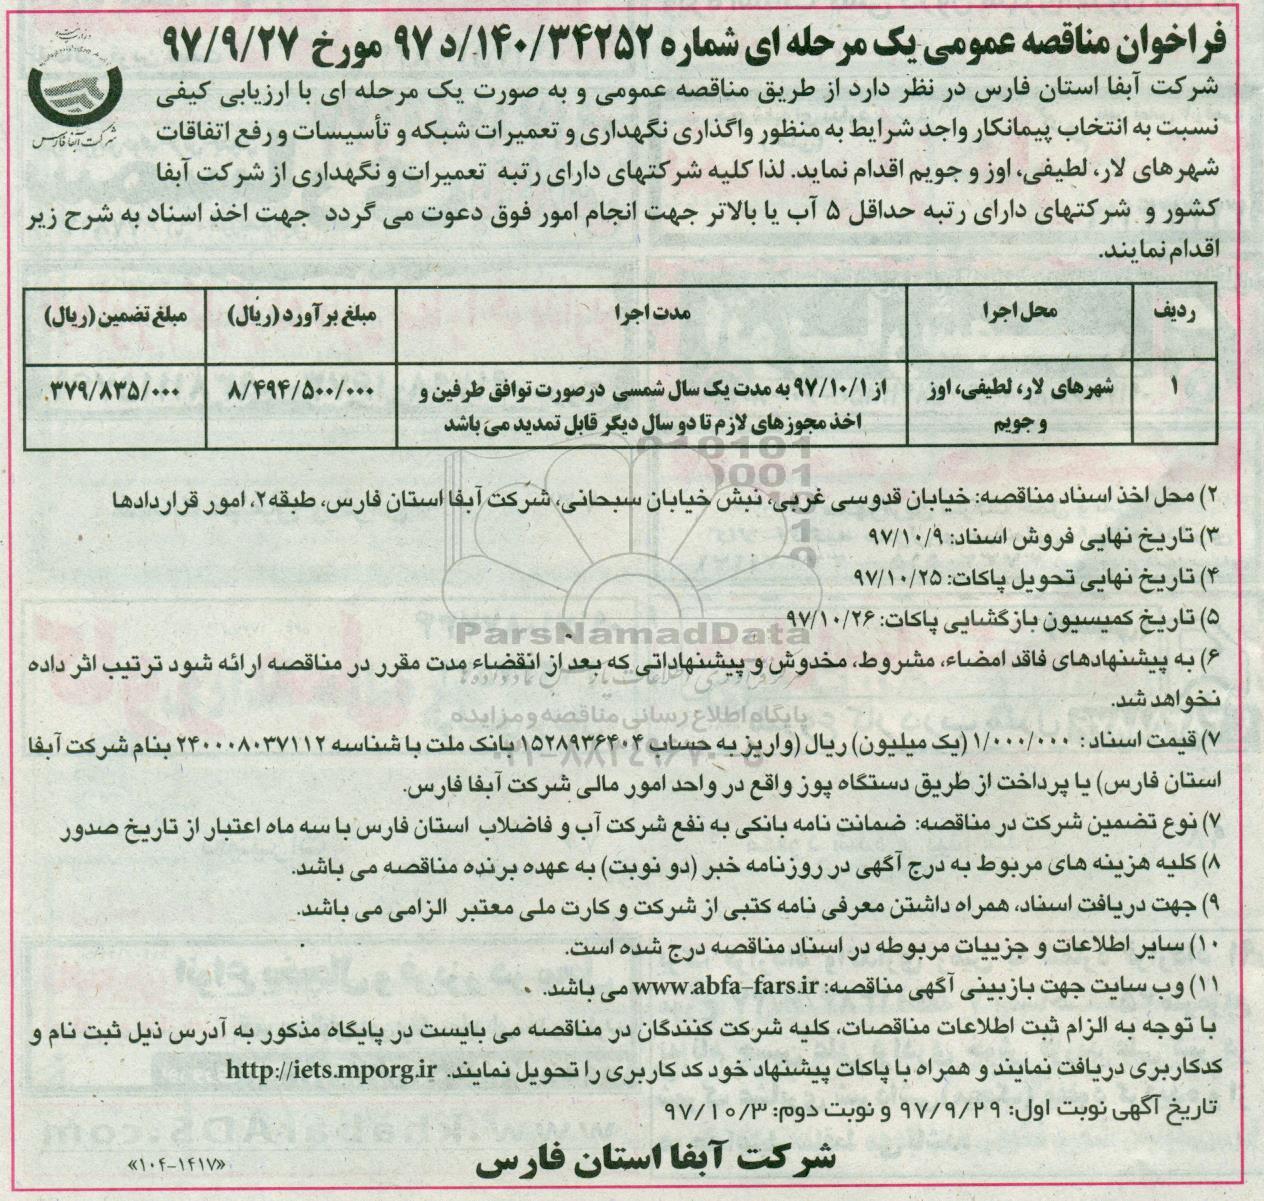 فراخوان مناقصه عمومی یک مرحله ای شماره ۱۴۰/۳۴۲۵۲/د ۹۷ مورخ ۹۷/۹/۲۷
شرکت آبفا فارس
شرکت آبفا استان فارس در نظر دارد از طریق مناقصه عمومی و به صورت یک مرحله ای با ارزیابی کیفی
نسبت به انتخاب پیمانکار واجد شرایط به منظور واگذاری نگهداری و تعمیرات شبکه و تأسیسات و رفع اتفاقات
شهرهای لار، لطیفی، اوز و جویم اقدام نماید. لذا کلیه شرکتهای دارای رتبه تعمیرات و نگهداری از شرکت آبفا
کشور و شرکتهای دارای رتبه حداقل ۵ آب یا بالاتر جهت انجام امور فوق دعوت می گردد جهت اخذ اسناد به شرح زیر
اقدام نمایند.
ردیف محل اجرا مدت اجرا مبلغ برآورد (ریال) مبلغ تضمین (ریال)
۱ شهرهای لار، لطیفی، اوز از ۹۷/۱۰/۱ به مدت یک سال شمسی درصورت توافق طرفین و ۸/۴۹۴/۵۰۰/۰۰۰ ۳۷۹/۸۳۵/۰۰۰
و جویم اخذ مجوزهای لازم تا دو سال دیگر قابل تمدید می باشد
۲) محل اخذ اسناد مناقصه: خیابان قدوسی غربی، نبش خیابان سبحانی، شرکت آبفا استان فارس، طبقه۲، امور قراردادها
۳) تاریخ نهایی فروش اسناد: ۹۷/۱۰/۹
۴) تاریخ نهایی تحویل پاکات: ۹۷/۱۰/۲۵
۵) تاریخ کمیسیون بازگشایی پاکات: ۹۷/۱۰/۲۶
ParsNamadData
۶) به پیشنهادهای فاقد امضاء، مشروط، مخدوش و پیشنهاداتی که بعد از انقضاء مدت مقرر در مناقصه ارائه شود ترتیب اثر داده
نخواهد شد.
پایگاه اطلاع رسانی مناقصه و مزایده
۷) قیمت اسناد: ۱/۰۰۰/۰۰۰ (یک میلیون) ریال (واریز به حساب ۱۵۲۸۹۳۶۴۰۴ بانک ملت با شناسه ۲۴۰۰۰۸۰۳۷۱۱۲ بنام شرکت آبفا
استان فارس) یا پرداخت از طریق دستگاه پوز واقع در واحد امور مالی شرکت آبفا فارس.
۷) نوع تضمین شرکت در مناقصه: ضمانت نامه بانکی به نفع شرکت آب و فاضلاب استان فارس با سه ماه اعتبار از تاریخ صدور
۸) کلیه هزینه های مربوط به درج آگهی در روزنامه خبر (دو نوبت) به عهده برنده مناقصه می باشد.
۹) جهت دریافت اسناد، همراه داشتن معرفی نامه کتبی از شرکت و کارت ملی معتبر الزامی می باشد.
۱۰) سایر اطلاعات و جزییات مربوطه در اسناد مناقصه درج شده است.
۱۱) وب سایت جهت بازبینی آگهی مناقصه: www.abfa-fars.ir می باشد.
با توجه به الزام ثبت اطلاعات مناقصات، کلیه شرکت کنندگان در مناقصه می بایست در پایگاه مذکور به آدرس ذیل ثبت نام و
کدکاربری دریافت نمایند و همراه با پاکات پیشنهاد خود کد کاربری را تحویل نمایند. http://iets.mporg.ir
تاریخ آگهی نوبت اول: ۹۷/۹/۲۹ و نوبت دوم: ۹۷/۱۰/۳
شرکت آبفا استان فارس
«۱۰۴-۱۴۱۷»